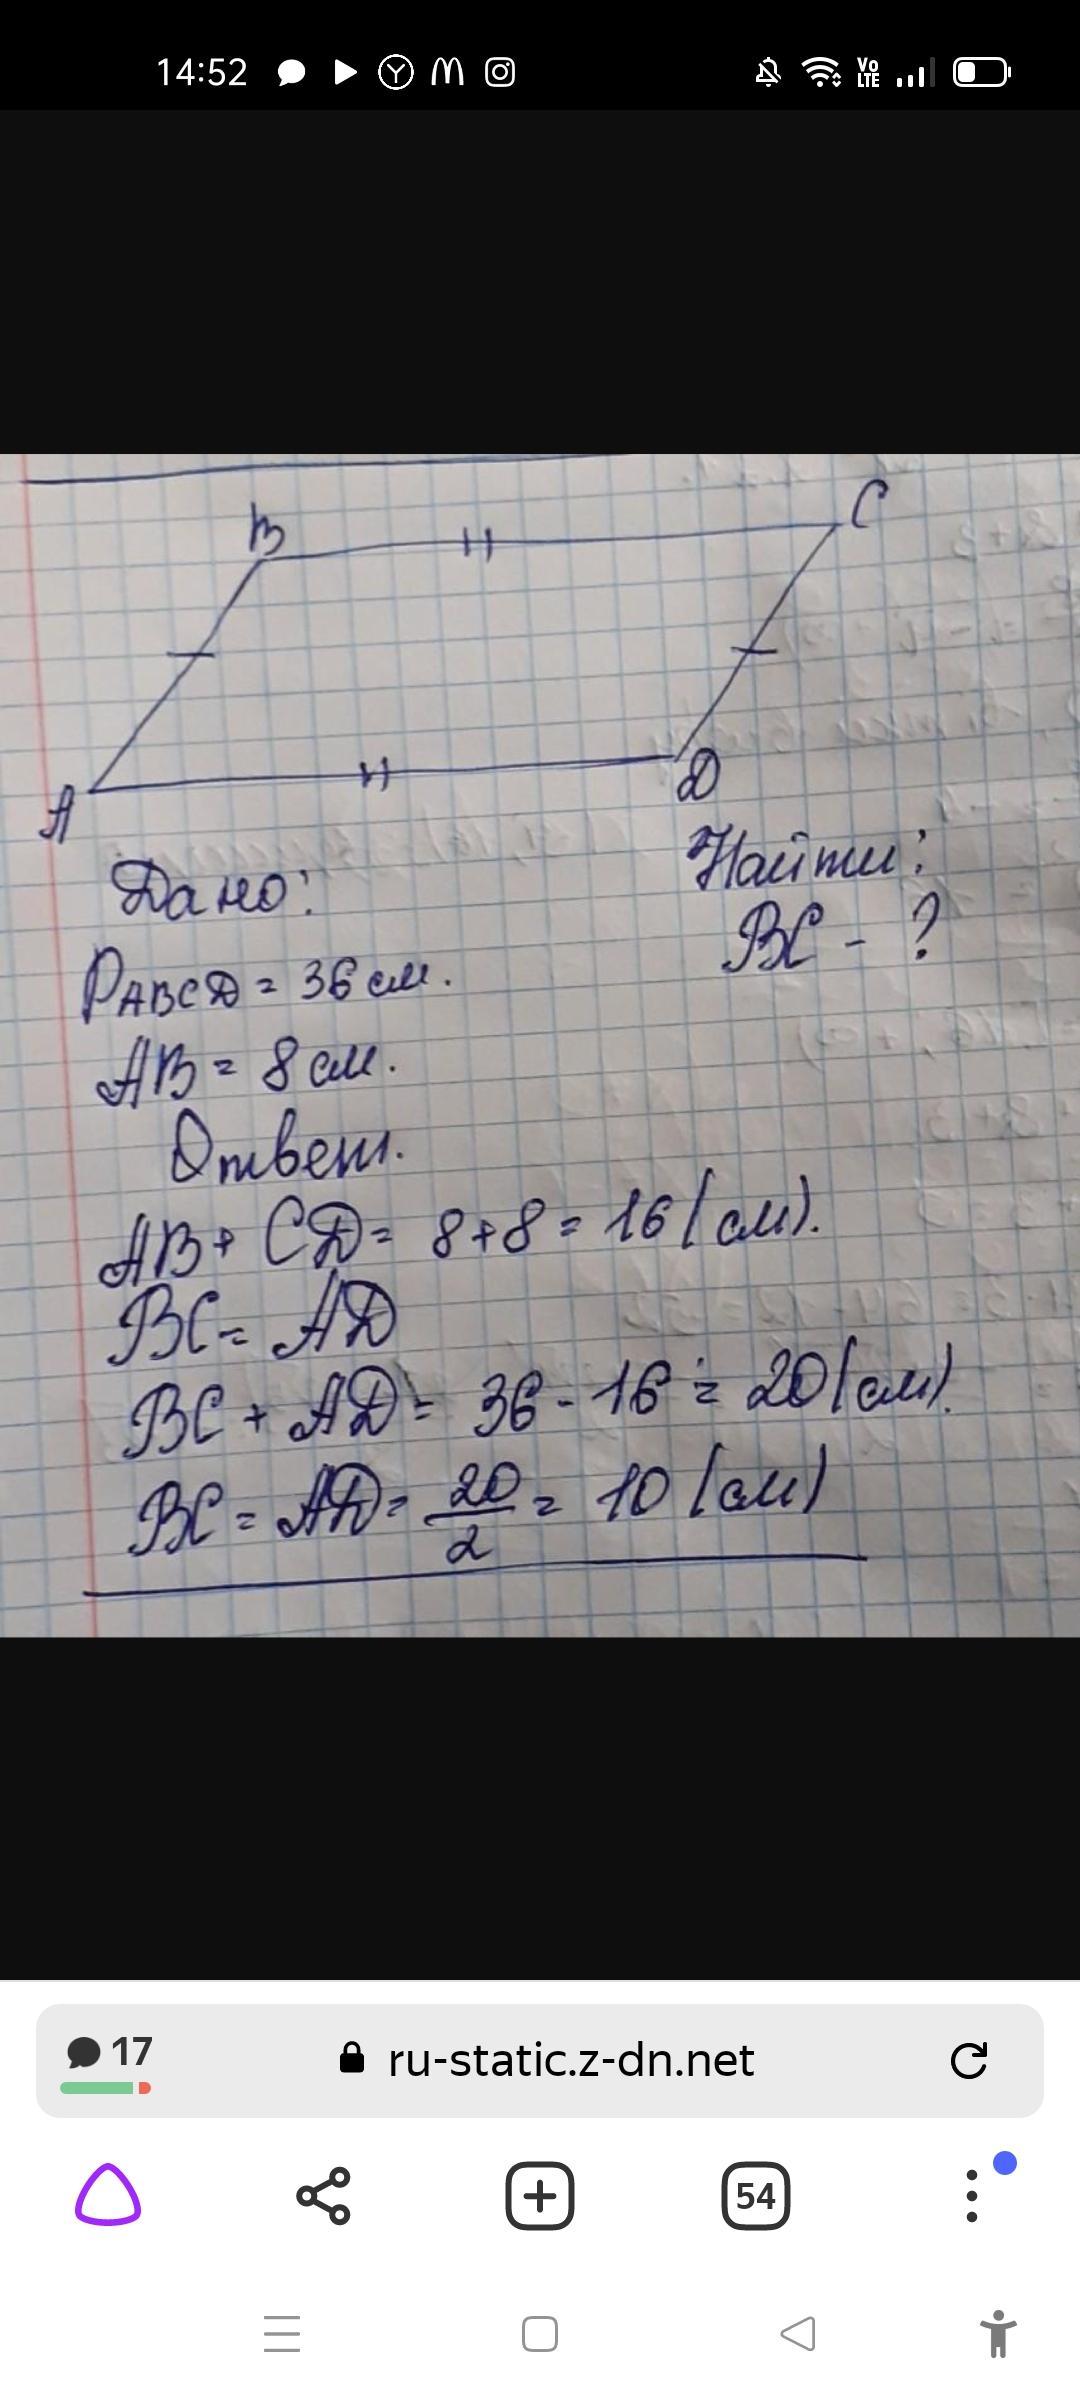 14:52
Vo
LTE
B
C
A
D
Дано:
Найти:
BC - ?
PABCD = 36 см.
AB = 8 см.
Ответ.
AB + CD = 8+8 = 16 (см).
BC = AD
BC + AD = 36 - 16 = 20 (см).
BC = AD = 20/2 = 10 (см)
17
ru-static.z-dn.net
54